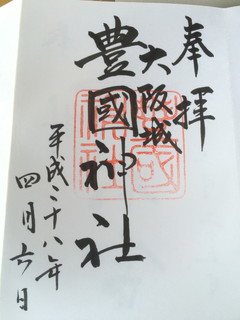 奉拝
大阪城
豊國神社
平成二十八年
四月六日